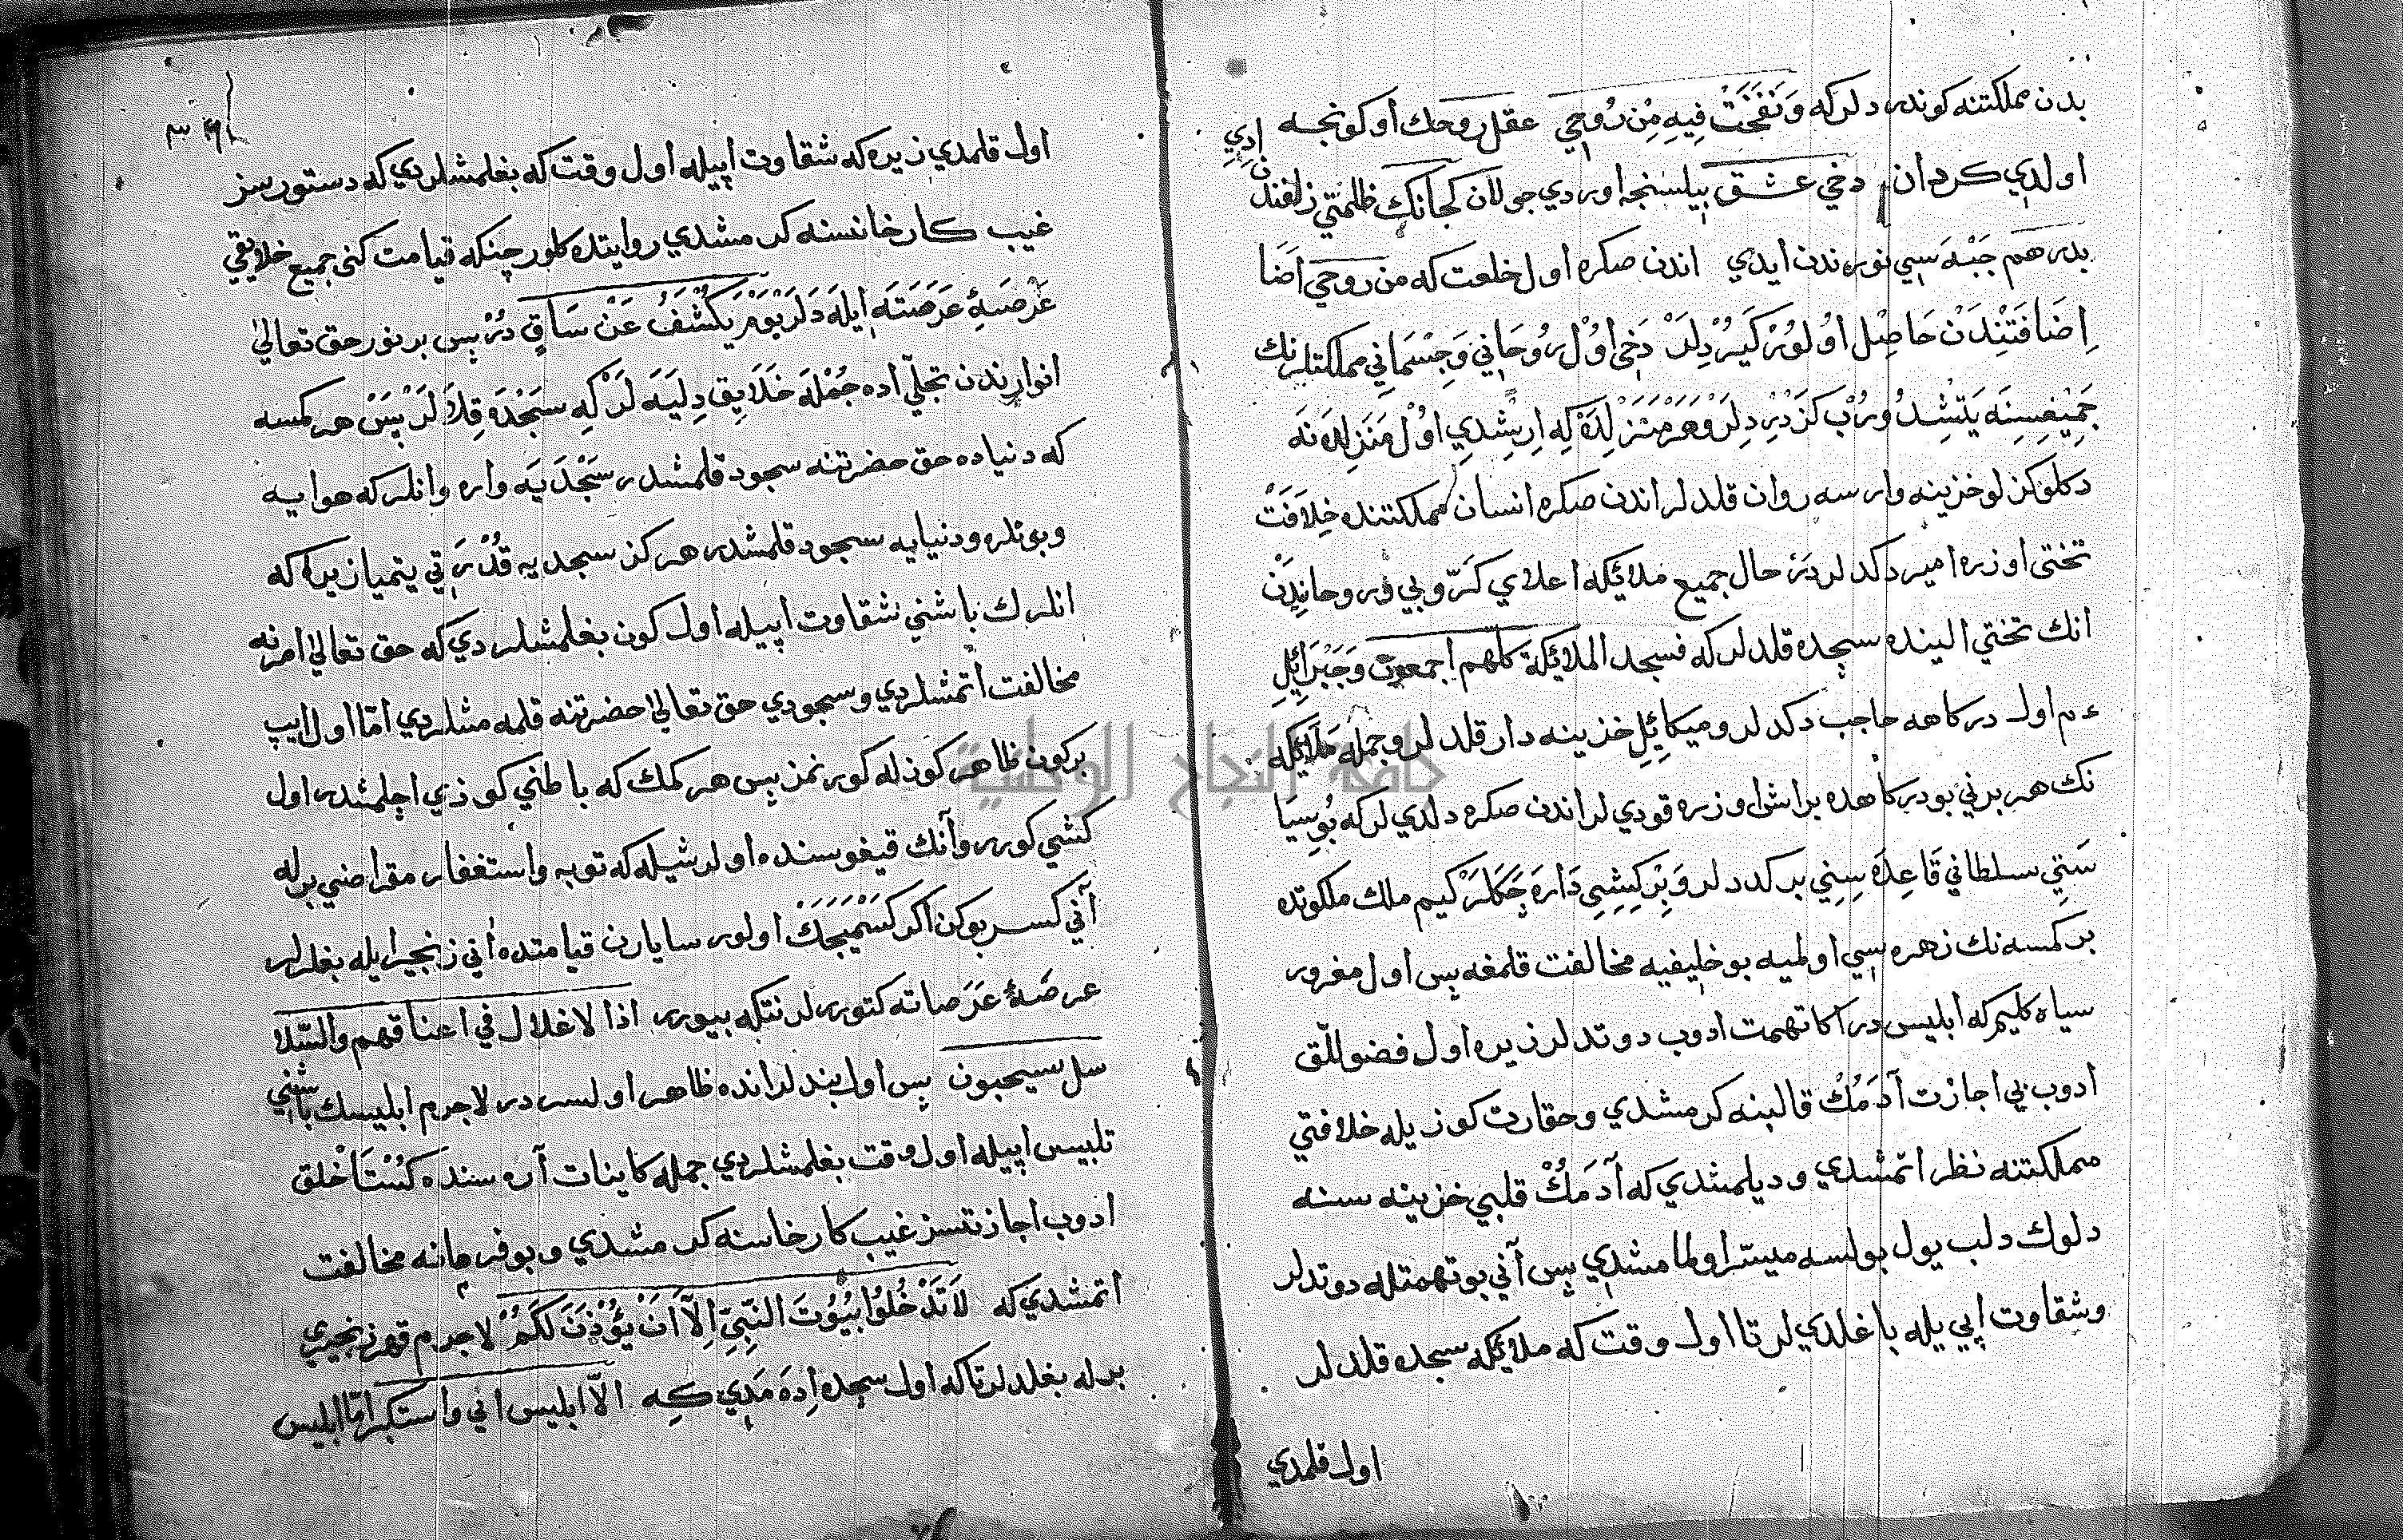 بدن مملكتنه كوندردلر كه وَنَفَخْتُ فِيهِ مِنْ رُوحِي عقل روحك أوكونجه ادي
اولدي كردان دخي عشق بيلسنجه اوردي جولان كجانك ظلمتي زلفندن
بدر هم جَبْهَ سي نورندن ايدي اندن صكره اول خلعت كه من روحي اضا
اِضَافَتِنْدَنْ حَاصِل اوُلوُرْ كَيُرْدِلَرْ دَخِي اوُل رُوحَانِي وَجِسْمَانِي مملكتلرنك
جَمِيعِسِنَه يَتِشدُورُبْ كَزْدُرْدِلَرْ وَهَرْ مَنْزِلَدَه كِه اِرِشِدِي اوُل مَنزِلدَه نَه
دكلو كزلو خزينه وارسه روان قلدلر اندن صكره انسان مملكتنده خِلاَفَتْ
تختى اوزره امير دكدلر دَرْ حال جميع ملائكه اعلاي كَرّوبي و روحانيدن
انك تختي الينده سجده قلدلر كه فسجد الملائكة كلهم اجمعون وَجَبْرَائِلِ
ءم اول دركاهه حاجب دكدلر و ميكائِلِ خزينه دار قلدلر و جمله مَلَائِكه
نك هر برني بو دركاهده بر اش اوزره قودي لر اندن صكره دلدي لر كه بُوسِيَا
سَتِي سلطاني قَاعِدَه سِنِي بركددلر وَبِرْ كِشِيِي دَارَه چَكَلَرْ كيم ملك ملكوتده
بر كمسه نك زهره سي اولميه بو خليفيه مخالفت قلمغه پس اول مغرور
سياه كليم كه ابليس در اكا تهمت ادوب دوتدلر زيره اول فضوللّق
ادوب بي اجازت آدَمُكْ قالبنه كرمشدي و حقارت كوزيله خلافتي
مملكتنه نظر اتمشدي و ديلمشدي كه آدَمُكْ قلبي خزينه سنه
دلوك دلب يول بولسه ميسّر اولمامشدي پس آني بو تهمتله دوتدلر
و شقاوت اپي يله باغلدي لر تا اول وقت كه ملائكه سجده قلدلر
اول قلمدي
اول قلمدي زيره كه شقاوت اپيله اول وقت كه بغلمشلردي كه دستورسز
غيب كارخانسنه كرمشدي روايتده كلور چنكه قيامت كنى جميع خلايقي
عَرْصَهٔ عَرَصَتَه ايله دَلَر يَوْمَ يُكْشَفُ عَنْ سَاقٍ دُرْ پس بر نور حق تعالىٰ
انوارندن تجلّي اده جُمْلَه خَلَايِق دِلِيَه لَرْ كِه سَجْدَه قِلاَ لَرْ پَسْ هر كمسه
كه دنياده حق حضرتنه سجود قلمشدر سَجْدَيَه واره و انلر كه هوايه
و بوتلره و دنيايه سجود قلمشدر هركز سجديه قُدْرَتِي يتميا زيره كه
انلرك باشني شقاوت اپيله اول كون بغلمشلردي كه حق تعالىٰ امرنه
مخالفت اتمشلردي و سجودي حق تعالىٰ حضرتنه قلمه مشلردي امّا اول ايپ
بركون ظاهر كوزله كورنمز پس هر كمك كه باطني كوزي اچلمشدر اول
كشي كورر و آنك قيغوسنده اولر شيله كه توبه و استغفار مقراضي برله
آني كسر بوكن اكر كَسْمَيَجَكْ اولور سا يارن قيامتده اني زنجير ايله بغلرلر
عرصَهٔ عَرَصاته كتوررلر نتكه بيورر اذا لاغلال في اعناقهم والسّلا
سل سيحبون پس اول بندلر انده ظاهر اولسردر لاجرم ابليسك باشني
تلبيس اپيله اول وقت بغلمشلردي جمله كاينات آره سنده كُسْتَاخْلق
ادوب اجازتسز غيب كارخاسنه كرمشدي و بو فرمانه مخالفت
اتمشدي كه لَا تَدْخُلُوا بُيُوتَ النَّبِيِّ اِلَّا اَنْ يُؤْذَنَ لَكُمْ لاجرم قهر زنجيري
برله بغلدلر تا كه اول سجده اِدَه مَدِي كِه الّا ابليس ابي و استكبر امّا ابليس
جامعة النجاح الوطنية